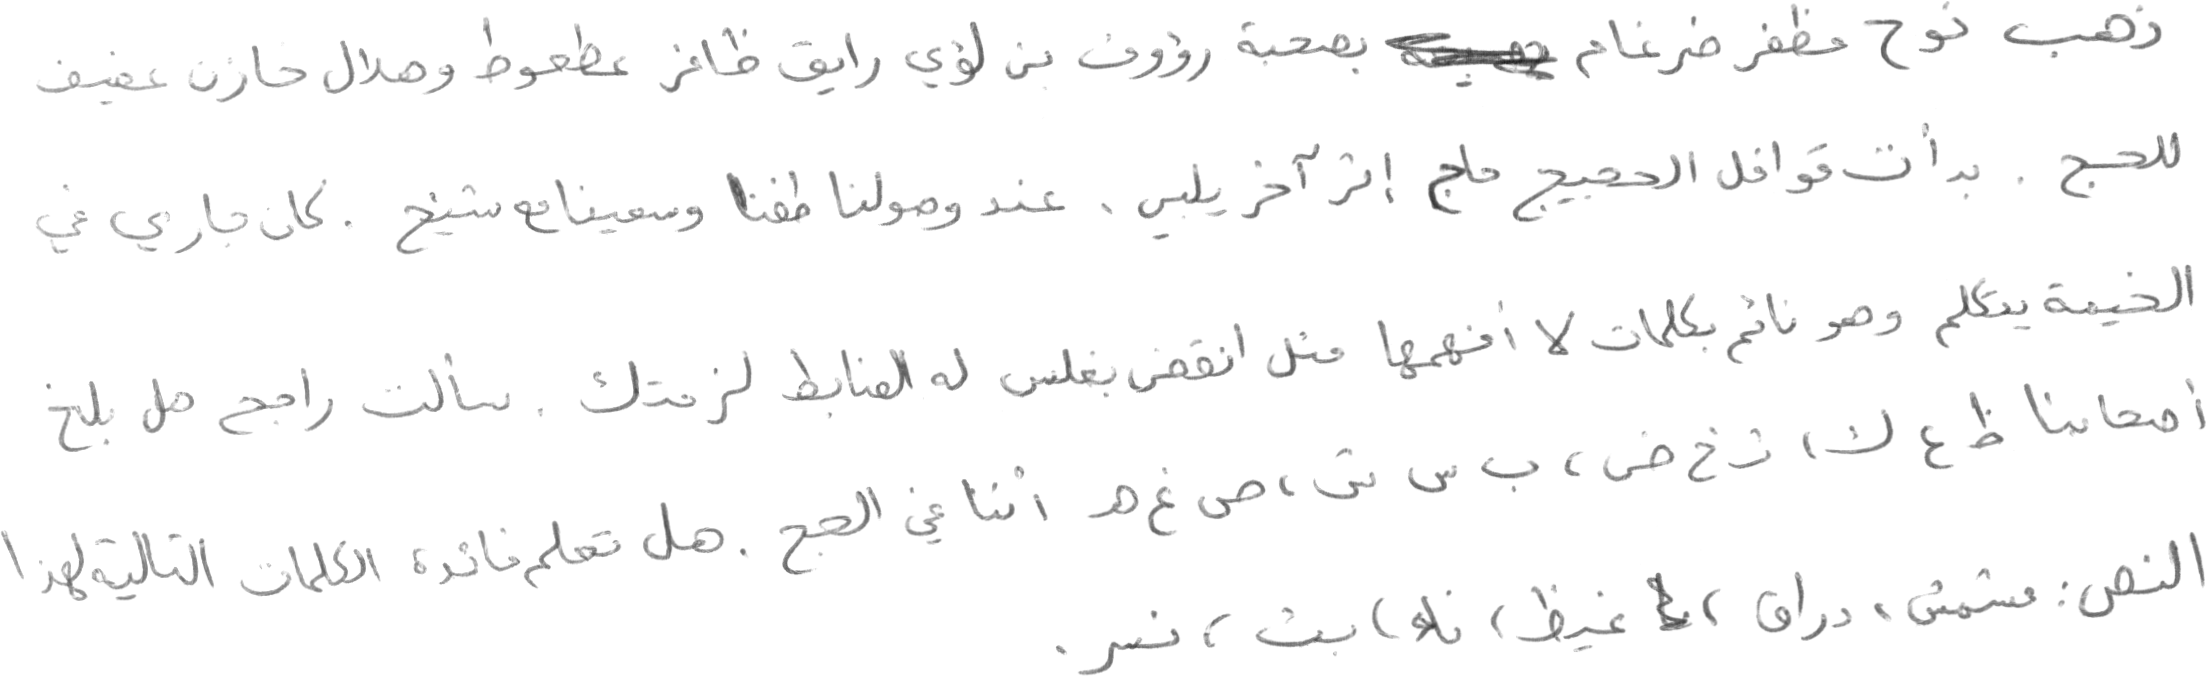 ذهب نوح مظفر ضرغام بصحبة رؤوف بن لؤي رايق ظافر عطعوط وهلال خازن عفيف
للحج . بدأت قوافل الحجيج حاج إثر آخر يلبي . عند وصولنا طفنا وسعينا مع شيخ . كان جاري في
الخيمة يتكلم وهو نائم بكلمات لا أفهمها مثل انقض بغلس له الضابط لزمتك . سألت راجح هل بلخ
أصحابنا ظ ع ك، ز خ ض ، ب س ش ، ص غ ه أننا في الحج . هل تعلم فائدة الكلمات التالية لهذا
النص : مشمش ، دراق ، غيظ ، نله ، بث ، نسر .